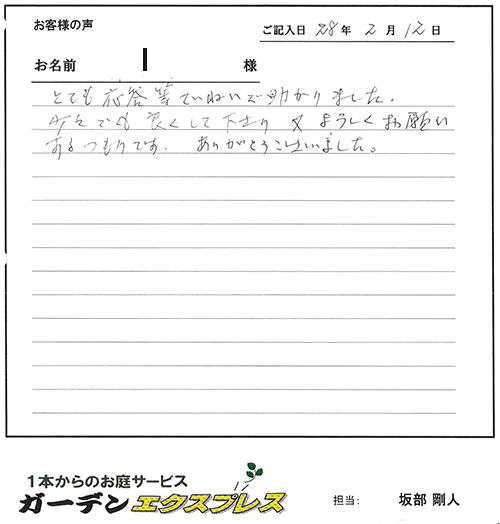 お客様の声
ご記入日 28年 2月 12日
お名前 様
とても応答等ていねいで助かりました。
少しでも良くして下さり 又 よろしくお願い
するつもりです。 ありがとうございました。
1本からのお庭サービス
ガーデンエクスプレス
担当: 坂部 剛人